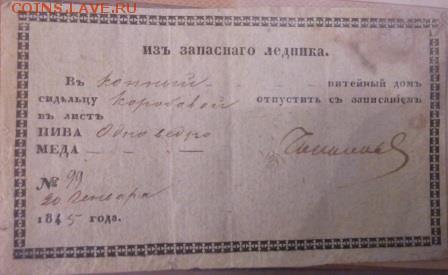 COINS.LAVE.RU
ИЗЪ ЗАПАСНАГО ЛЕДНИКА.
Въ конный питейный дом
сидельцу Коробовой отпустить съ записаніем
въ листъ
ПИВА Одно ведро
МЕДА — — —
№ 99
20 Генваря
1845 года.